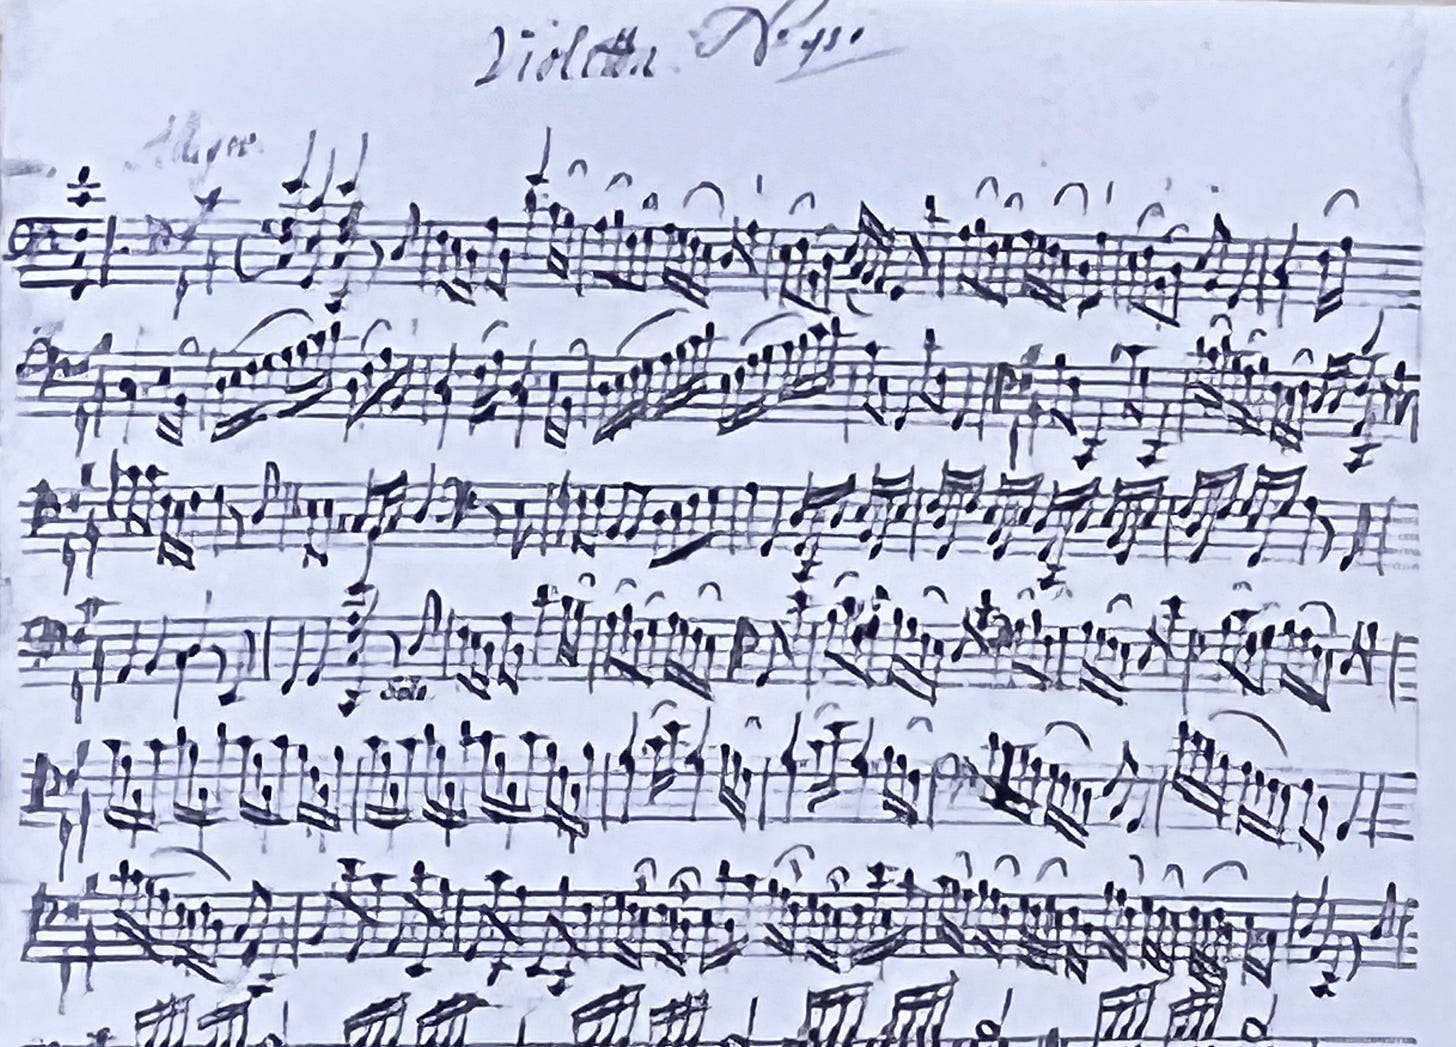 Violetta
Allegro
Solo